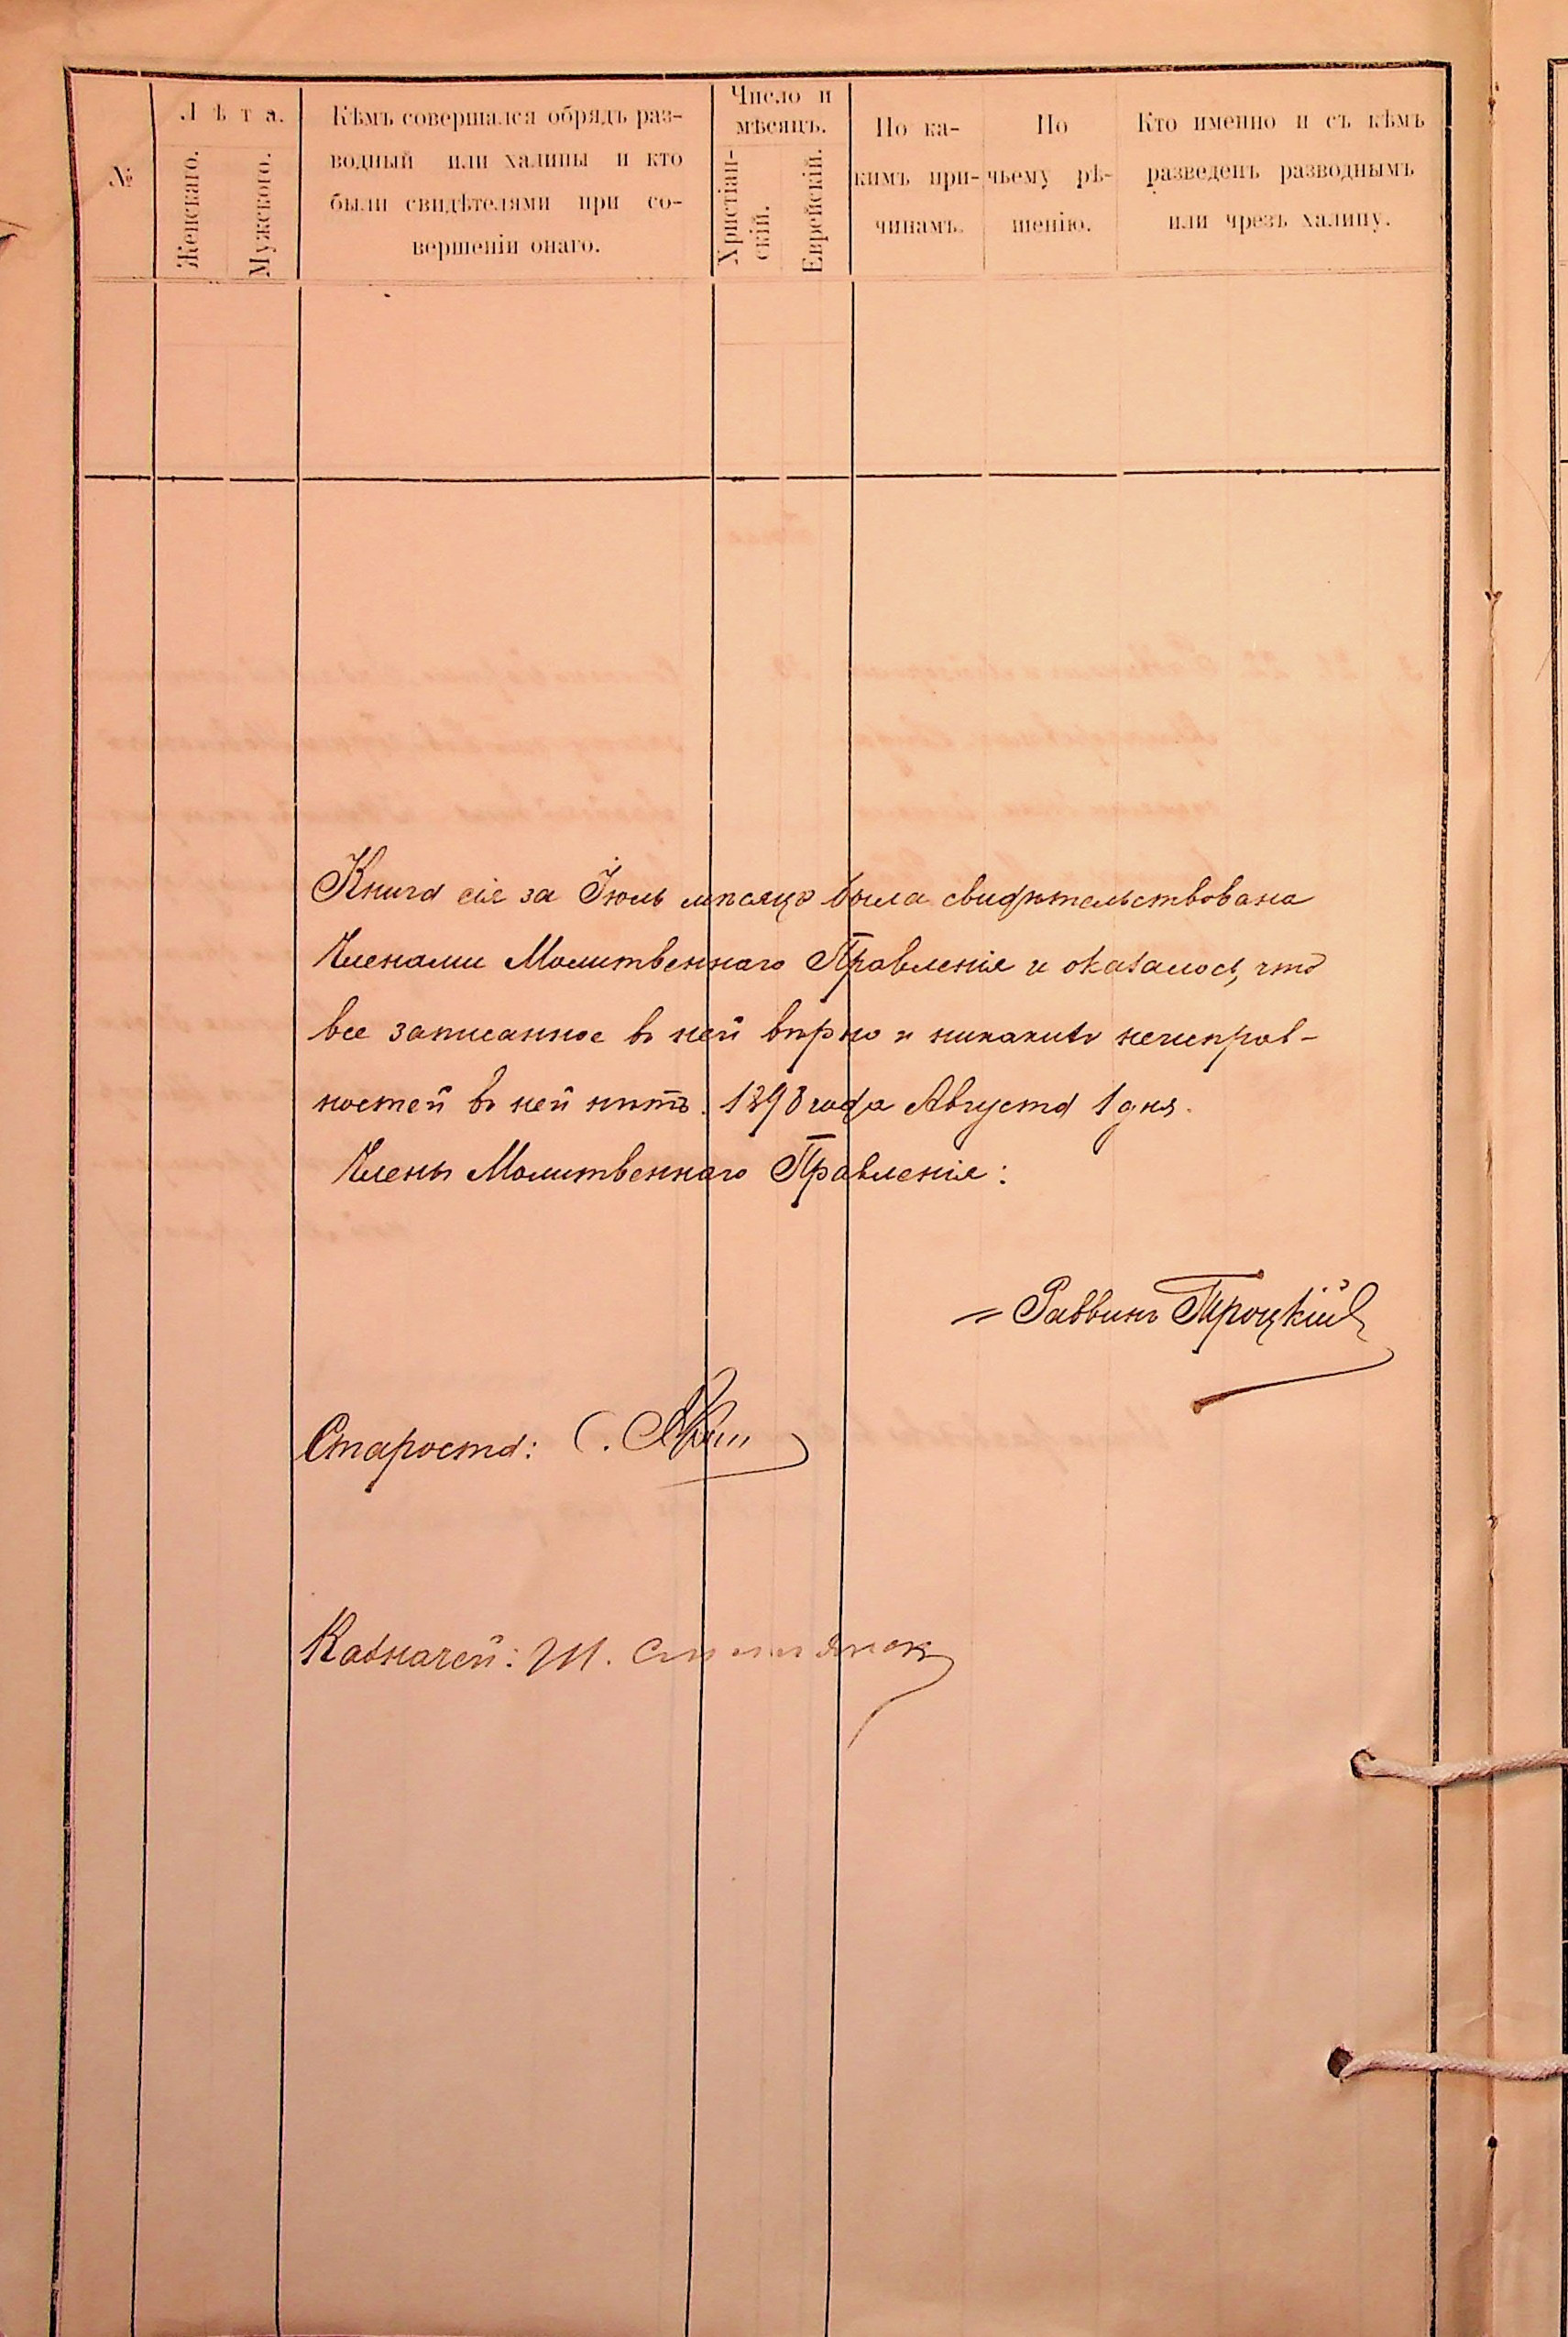 №
Лѣта.
Женскаго.
Мужского.
Кѣмъ совершался обрядъ раз-
водный или халицы и кто
были свидѣтелями при со-
вершеніи онаго.
Число и
мѣсяцъ.
Христіан-
скій.
Еврейскій.
По ка-
кимъ при-
чинамъ.
По
чьему рѣ-
шенію.
Кто именно и съ кѣмъ
разведенъ разводнымъ
или чрезъ халицу.
Книга сія за Іюль мѣсяцъ была свидѣтельствована
Членами Молитвеннаго Правленія и оказалось, что
все записанное въ ней вѣрно и никакихъ неисправ-
ностей въ ней нѣтъ. 1898 года Августа 1 дня.
Члены Молитвеннаго Правленія:
Раввинъ Троцкій
Староста: С.
Казначей: Ш.